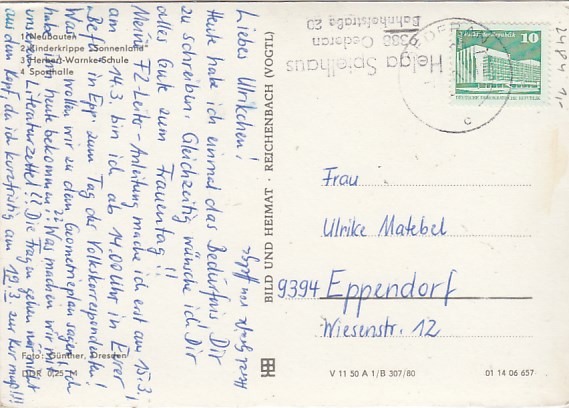 1 Neubauten
2 Kinderkrippe "Sonnenland"
3 Herbert-Warnke-Schule
4 Sporthalle
Liebes Ulrikchen!
Heute habe ich einmal das Bedürfnis Dir
zu schreiben. Gleichzeitig wünsche ich Dir
alles Gute zum Frauentag!!
Meine FZ-Leite-Anleitung mache ich erst am 15.3.,
am 14.3 bin ich ab 14.00 Uhr in Eurer
in Epp. zum Tag der Volkskorrespondenten!
wollen wir zu dem Geometrieplan sagen, ich
habe ihn heute bekommen?! Was machen wir mit
Literaturzettel?! Die Fragen gehen mir nicht
aus dem Kopf, da ich kurzfristig am 12.3. zur Kur muß!!!
Herzl. Grüße von
Foto: Günther, Dresden
DDR 0,25 M
BILD UND HEIMAT · REICHENBACH (VOGTL)
Helga Spielhaus
9383 Oederan
Bahnhofstraße 20
OEDERAN
c
10
DEUTSCHE DEMOKRATISCHE REPUBLIK
2484 1,-
Frau
Ulrike Matebel
9394 Eppendorf
Wiesenstr. 12
V 11 50 A 1/B 307/80
01 14 06 657